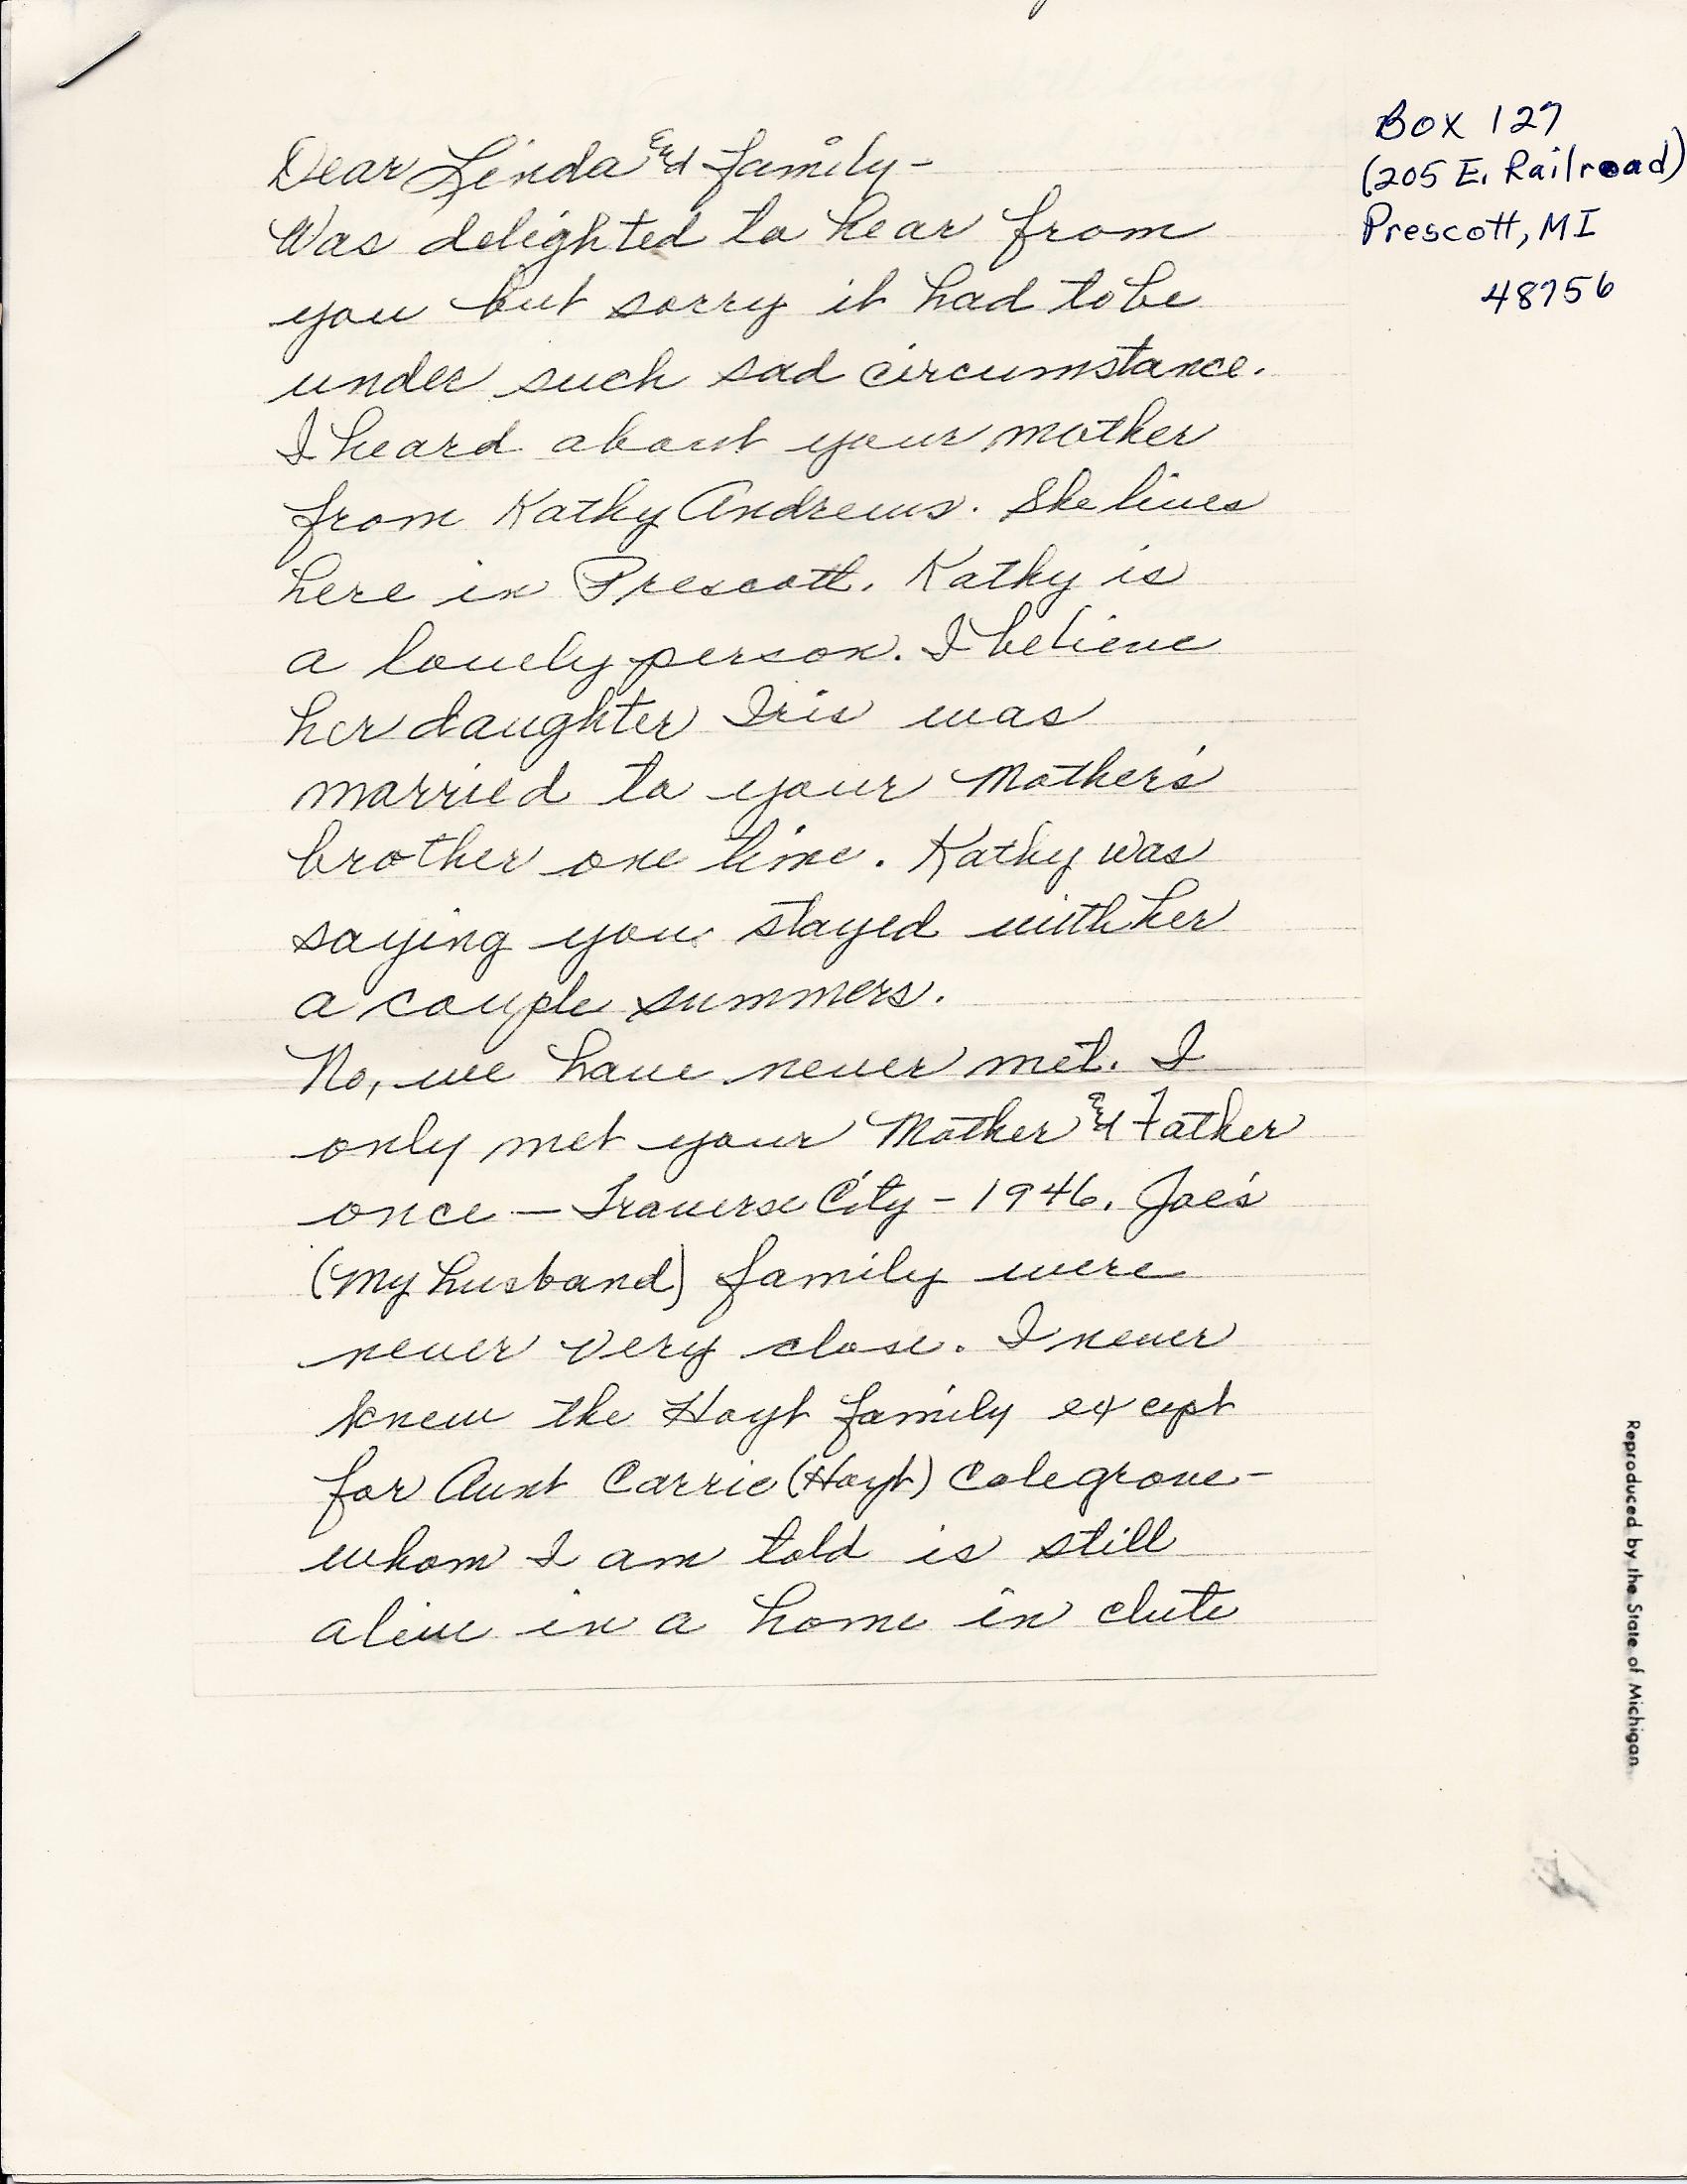 Box 127
(205 E. Railroad)
Prescott, MI
48756
Dear Linda & family-
Was delighted to hear from
you but sorry it had to be
under such sad circumstance.
I heard about your mother
from Kathy Andrews. She lives
here in Prescott. Kathy is
a lovely person. I believe
her daughter Iris was
married to your Mother's
brother one time. Kathy was
saying you stayed with her
a couple summers.
No, we have never met. I
only met your Mother & Father
once — Traverse City - 1946. Joe's
(my husband) family were
never very close. I never
knew the Hoyt family except
for Aunt Carrie (Hoyt) Colegrove-
whom I am told is still
alive in a home in clute
Reproduced by the State of Michigan